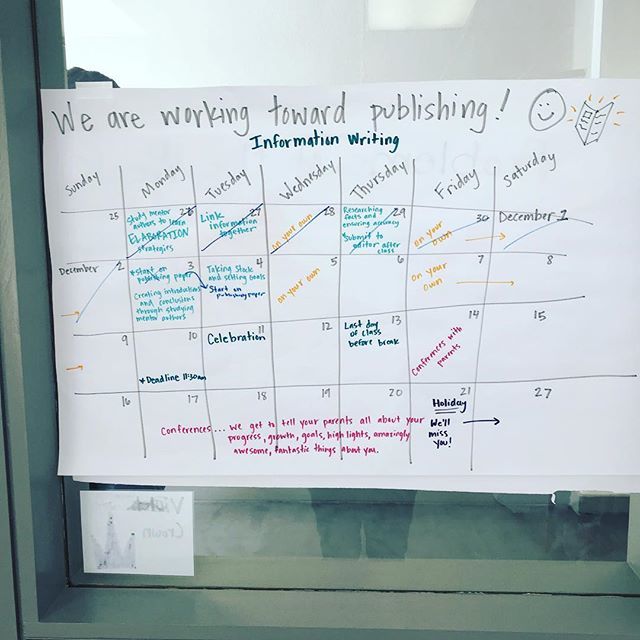 We are working toward publishing!
Information Writing
Sunday Monday Tuesday Wednesday Thursday Friday Saturday
25
26
Study mentor
authors to learn
ELABORATION
strategies
27
Link
information
together
28
on your own
29
Researching
facts and
ensuring accuracy
*Submit to
editor after
class
30
on your
own
December 1
December 2
3
*Start on
publishing paper
Creating introductions
and conclusions
through studying
mentor authors
4
Taking Stock
and setting goals
Start on
publishing paper
5
on your own
6
7
On your
own
8
9
10
*Deadline 11:30am
11
Celebration
12
13
Last day
of class
before break
14
Conferences with
parents
15
16
17
18
19
20
21
Holiday
We'll
miss
you!
27
Conferences... we get to tell your parents all about your
progress, growth, goals, highlights, amazingly
awesome, fantastic things about you.
Crown